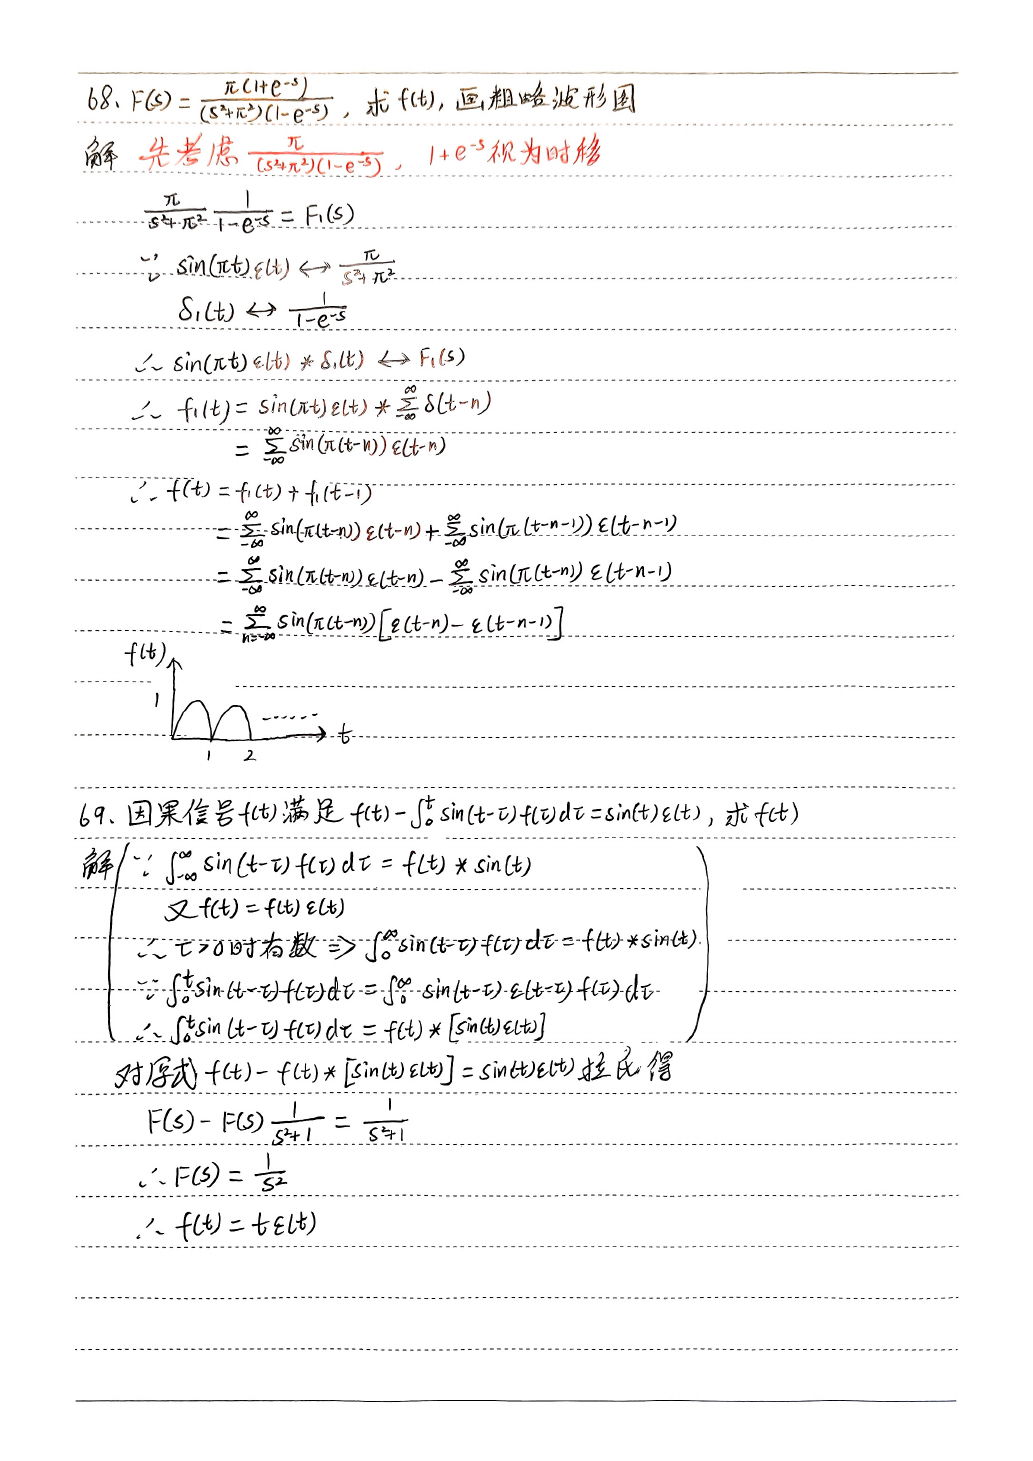 68、F(s) = π(1+e^{-s}) / (s²+π²)(1-e^{-s}) , 求 f(t), 画粗略波形图
解 先考虑 π / (s²+π²)(1-e^{-s}) , 1+e^{-s} 视为时移
π/(s²+π²) 1/(1-e^{-s}) = F₁(s)
∵ sin(πt)ε(t) ↔ π/(s²+π²)
δ₁(t) ↔ 1/(1-e^{-s})
∴ sin(πt)ε(t) * δ₁(t) ↔ F₁(s)
∴ f₁(t) = sin(πt)ε(t) * Σ_{-∞}^{∞} δ(t-n)
= Σ_{-∞}^{∞} sin(π(t-n)) ε(t-n)
∴ f(t) = f₁(t) + f₁(t-1)
= Σ_{-∞}^{∞} sin(π(t-n)) ε(t-n) + Σ_{-∞}^{∞} sin(π(t-n-1)) ε(t-n-1)
= Σ_{-∞}^{∞} sin(π(t-n)) ε(t-n) - Σ_{-∞}^{∞} sin(π(t-n)) ε(t-n-1)
= Σ_{n=-∞}^{∞} sin(π(t-n)) [ε(t-n) - ε(t-n-1)]
f(t)
1
......
t
1 2
69、因果信号 f(t) 满足 f(t) - ∫₀ᵗ sin(t-τ) f(τ) dτ = sin(t)ε(t), 求 f(t)
解 (∵ ∫_{-∞}^{∞} sin(t-τ) f(τ) dτ = f(t) * sin(t)
又 f(t) = f(t) ε(t)
∴ τ>0时有数 ⇒ ∫₀^∞ sin(t-τ) f(τ) dτ = f(t) * sin(t).
∵ ∫₀ᵗ sin(t-τ) f(τ) dτ = ∫₀^∞ sin(t-τ) ε(t-τ) f(τ) dτ
∴ ∫₀ᵗ sin(t-τ) f(τ) dτ = f(t) * [sin(t)ε(t)] )
对原式 f(t) - f(t) * [sin(t)ε(t)] = sin(t)ε(t) 拉氏得
F(s) - F(s) 1/(s²+1) = 1/(s²+1)
∴ F(s) = 1/s²
∴ f(t) = tε(t)